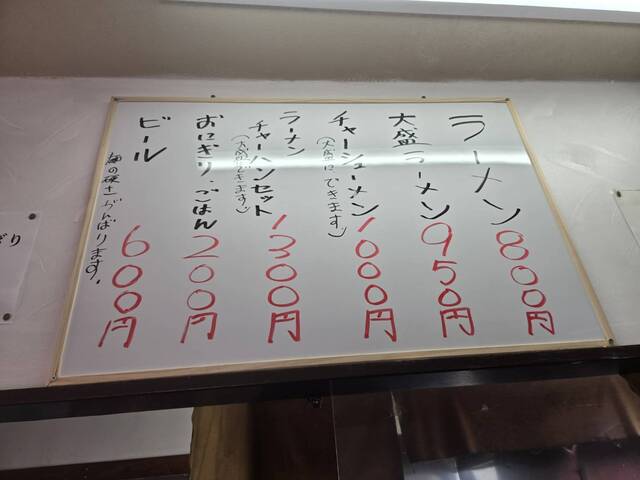 ラーメン 800円
大盛(ラーメン) 950円
チャーシューメン 1000円
(大盛にできます)
ラーメン
チャーハンセット 1300円
(大盛できます)
おにぎり ごはん 200円
ビール 600円
麺の硬さがんばります。
ぎり